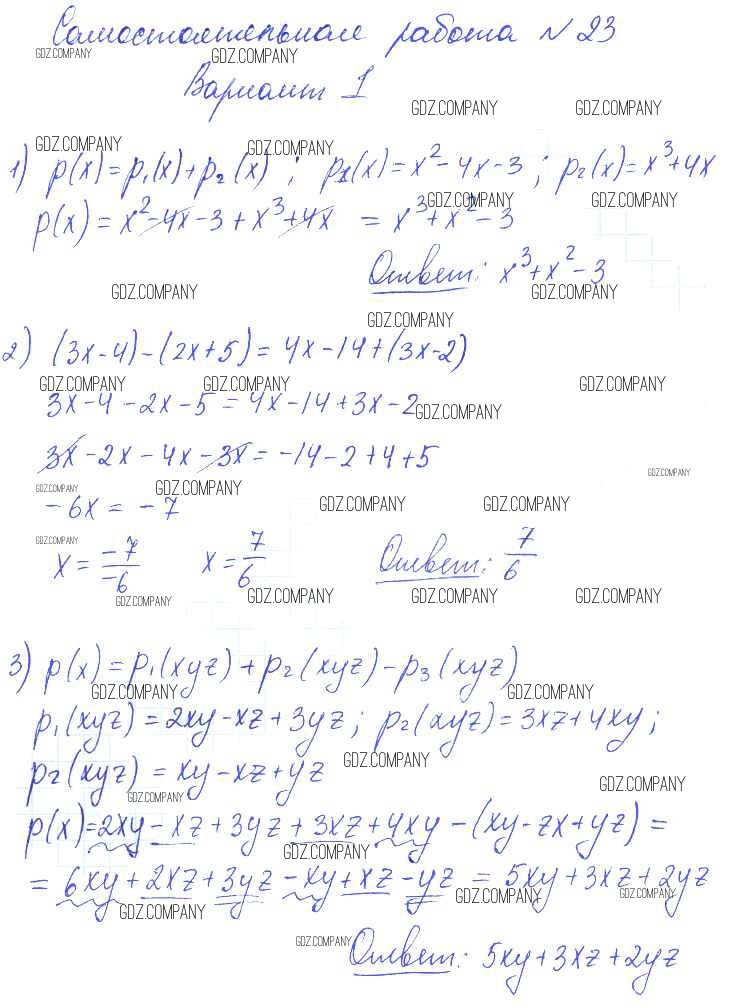 Самостоятельная работа N 23
GDZ.COMPANY GDZ.COMPANY
Вариант 1
GDZ.COMPANY GDZ.COMPANY
GDZ.COMPANY GDZ.COMPANY
1) p(x) = p₁(x) + p₂(x) ; p₁(x) = x² - 4x - 3 ; p₂(x) = x³ + 4x
GDZ.COMPANY GDZ.COMPANY
p(x) = x² - 4x - 3 + x³ + 4x = x³ + x² - 3
Ответ: x³ + x² - 3
GDZ.COMPANY GDZ.COMPANY
GDZ.COMPANY
2) (3x - 4) - (2x + 5) = 4x - 14 + (3x - 2)
GDZ.COMPANY GDZ.COMPANY GDZ.COMPANY
3x - 4 - 2x - 5 = 4x - 14 + 3x - 2
GDZ.COMPANY
3x - 2x - 4x - 3x = -14 - 2 + 4 + 5
GDZ.COMPANY
GDZ.COMPANY GDZ.COMPANY
-6x = -7
GDZ.COMPANY GDZ.COMPANY
GDZ.COMPANY
x = -7/-6 x = 7/6 Ответ: 7/6
GDZ.COMPANY GDZ.COMPANY GDZ.COMPANY GDZ.COMPANY
3) p(x) = p₁(xyz) + p₂(xyz) - p₃(xyz)
GDZ.COMPANY GDZ.COMPANY
p₁(xyz) = 2xy - xz + 3yz ; p₂(xyz) = 3xz + 4xy ;
GDZ.COMPANY
p₂(xyz) = xy - xz + yz
GDZ.COMPANY
GDZ.COMPANY
p(x) = 2xy - xz + 3yz + 3xz + 4xy - (xy - zx + yz) =
GDZ.COMPANY
= 6xy + 2xz + 3yz - xy + xz - yz = 5xy + 3xz + 2yz
GDZ.COMPANY GDZ.COMPANY
GDZ.COMPANY
GDZ.COMPANY
Ответ: 5xy + 3xz + 2yz